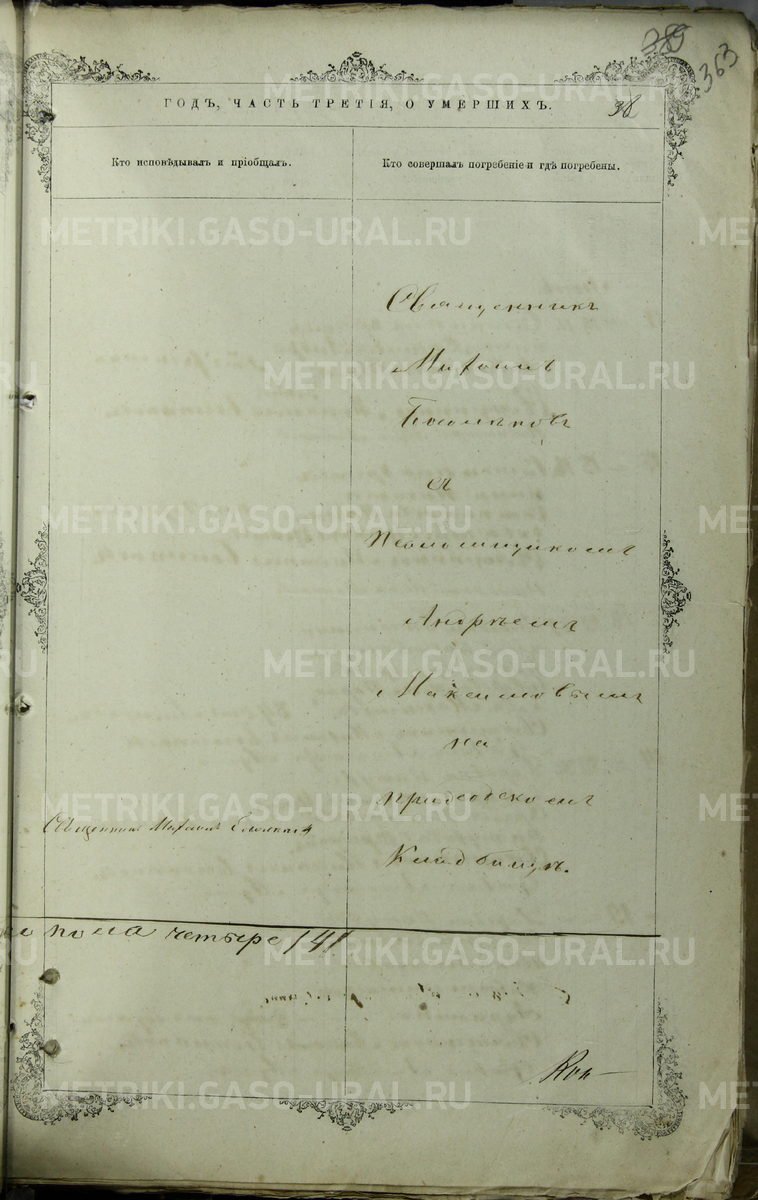 389
363
ГОДЪ, ЧАСТЬ ТРЕТІЯ, О УМЕРШИХЪ.
38
Кто исповѣдывалъ и пріобщалъ.
Кто совершалъ погребеніе и гдѣ погребены.
Священникъ
Михаилъ
съ
Псаломщикомъ
Андреемъ
Максимовымъ
на
приходскомъ
Кладбищѣ.
Священникъ Михаилъ
пола четыре /4/
METRIKI.GASO-URAL.RU